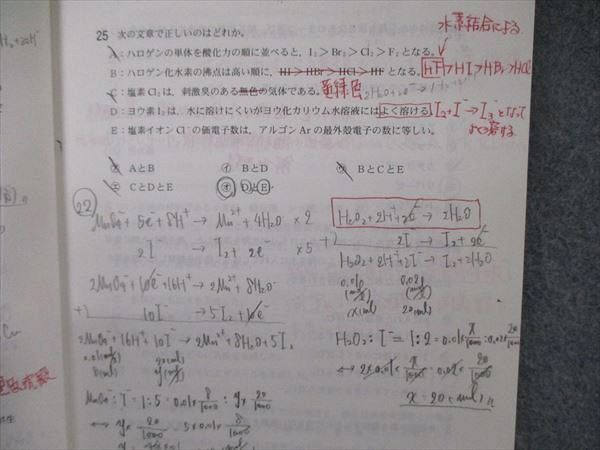 水素結合による
25 次の文章で正しいのはどれか。
A：ハロゲンの単体を酸化力の順に並べると，I₂＞Br₂＞Cl₂＞F₂となる。
B：ハロゲン化水素の沸点は高い順に，HI＞HBr＞HCl＞HFとなる。 HF＞HI＞HBr＞HCl
黄緑色
C：塩素Cl₂は，刺激臭のある無色の気体である。
D：ヨウ素I₂は，水に溶けにくいがヨウ化カリウム水溶液にはよく溶ける。 I₂+I⁻→I₃⁻となって
よく溶ける
E：塩素イオンCl⁻の価電子数は，アルゴンArの最外殻電子の数に等しい。
ア AとB イ BとD ウ BとCとE
エ CとDとE オ DとE
22
MnO₄⁻+5e⁻+8H⁺→Mn²⁺+4H₂O ×2
2I⁻→I₂+2e⁻ ×5
2MnO₄⁻+10e⁻+16H⁺→2Mn²⁺+8H₂O
+) 10I⁻→5I₂+10e⁻
2MnO₄⁻+16H⁺+10I⁻→2Mn²⁺+8H₂O+5I₂
MnO₄⁻:I⁻=1:5=0.01×8/1000:y×20/1000
⇔ y×20/1000=5×0.01×8/1000
H₂O₂+2H⁺+2e⁻→2H₂O
+) 2I⁻→I₂+2e⁻
H₂O₂+2H⁺+2I⁻→I₂+2H₂O
0.01 0.02
x(ml) 20(ml)
H₂O₂:I⁻=1:2=0.01×x/1000:0.02×20/1000
⇔ 2×0.01×x/1000=0.02×20/1000
x=20(ml)